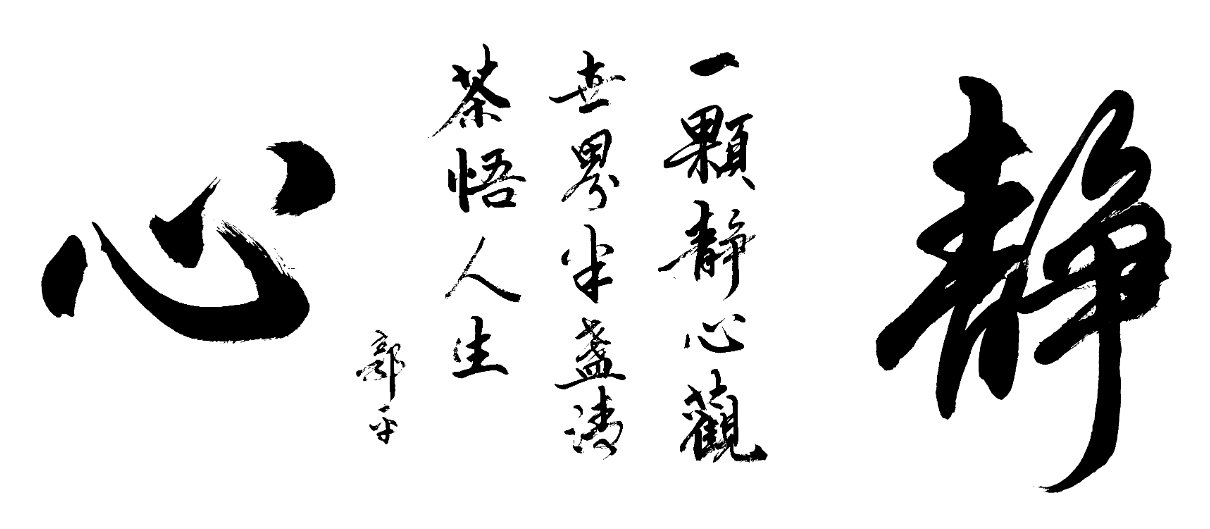 静
一顆静心觀
世界半盞清
茶悟人生
郭平
心